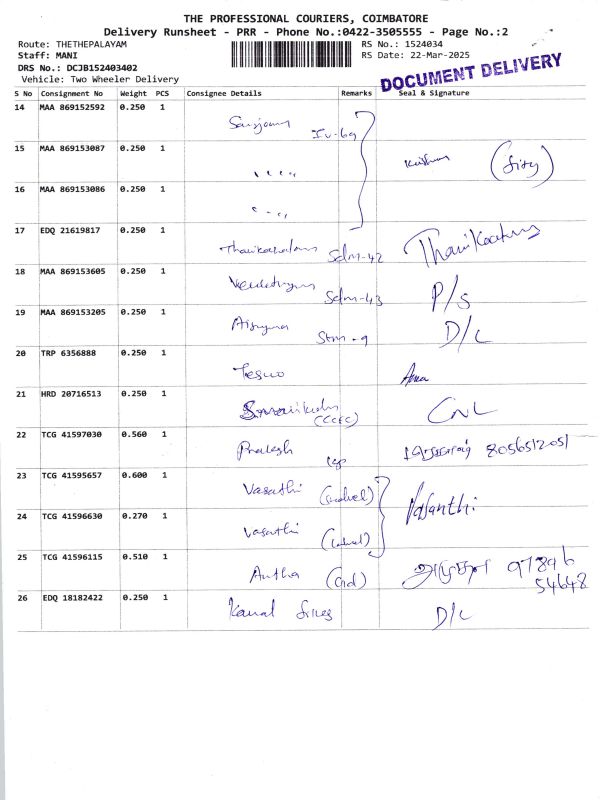 THE PROFESSIONAL COURIERS, COIMBATORE
Delivery Runsheet - PRR - Phone No.:0422-3505555 - Page No.:2
Route: THETHEPALAYAM
Staff: MANI
DRS No.: DCJB152403402
Vehicle: Two Wheeler Delivery
RS No.: 1524034
RS Date: 22-Mar-2025
DOCUMENT DELIVERY
S No Consignment No Weight PCS Consignee Details Remarks Seal & Signature
14 MAA 869152592 0.250 1
15 MAA 869153087 0.250 1
16 MAA 869153086 0.250 1
17 EDQ 21619817 0.250 1 Sdm-42
18 MAA 869153605 0.250 1 Sdm-43 P/S
19 MAA 869153205 0.250 1 D/L
20 TRP 6356888 0.250 1
21 HRD 20716513 0.250 1
22 TCG 41597030 0.560 1 Prakash 8056512051
23 TCG 41595657 0.600 1 Vasathi
24 TCG 41596630 0.270 1 Vasathi Vasanthi
25 TCG 41596115 0.510 1 Antha அமுதா 97896
54648
26 EDQ 18182422 0.250 1 Kamal D/L